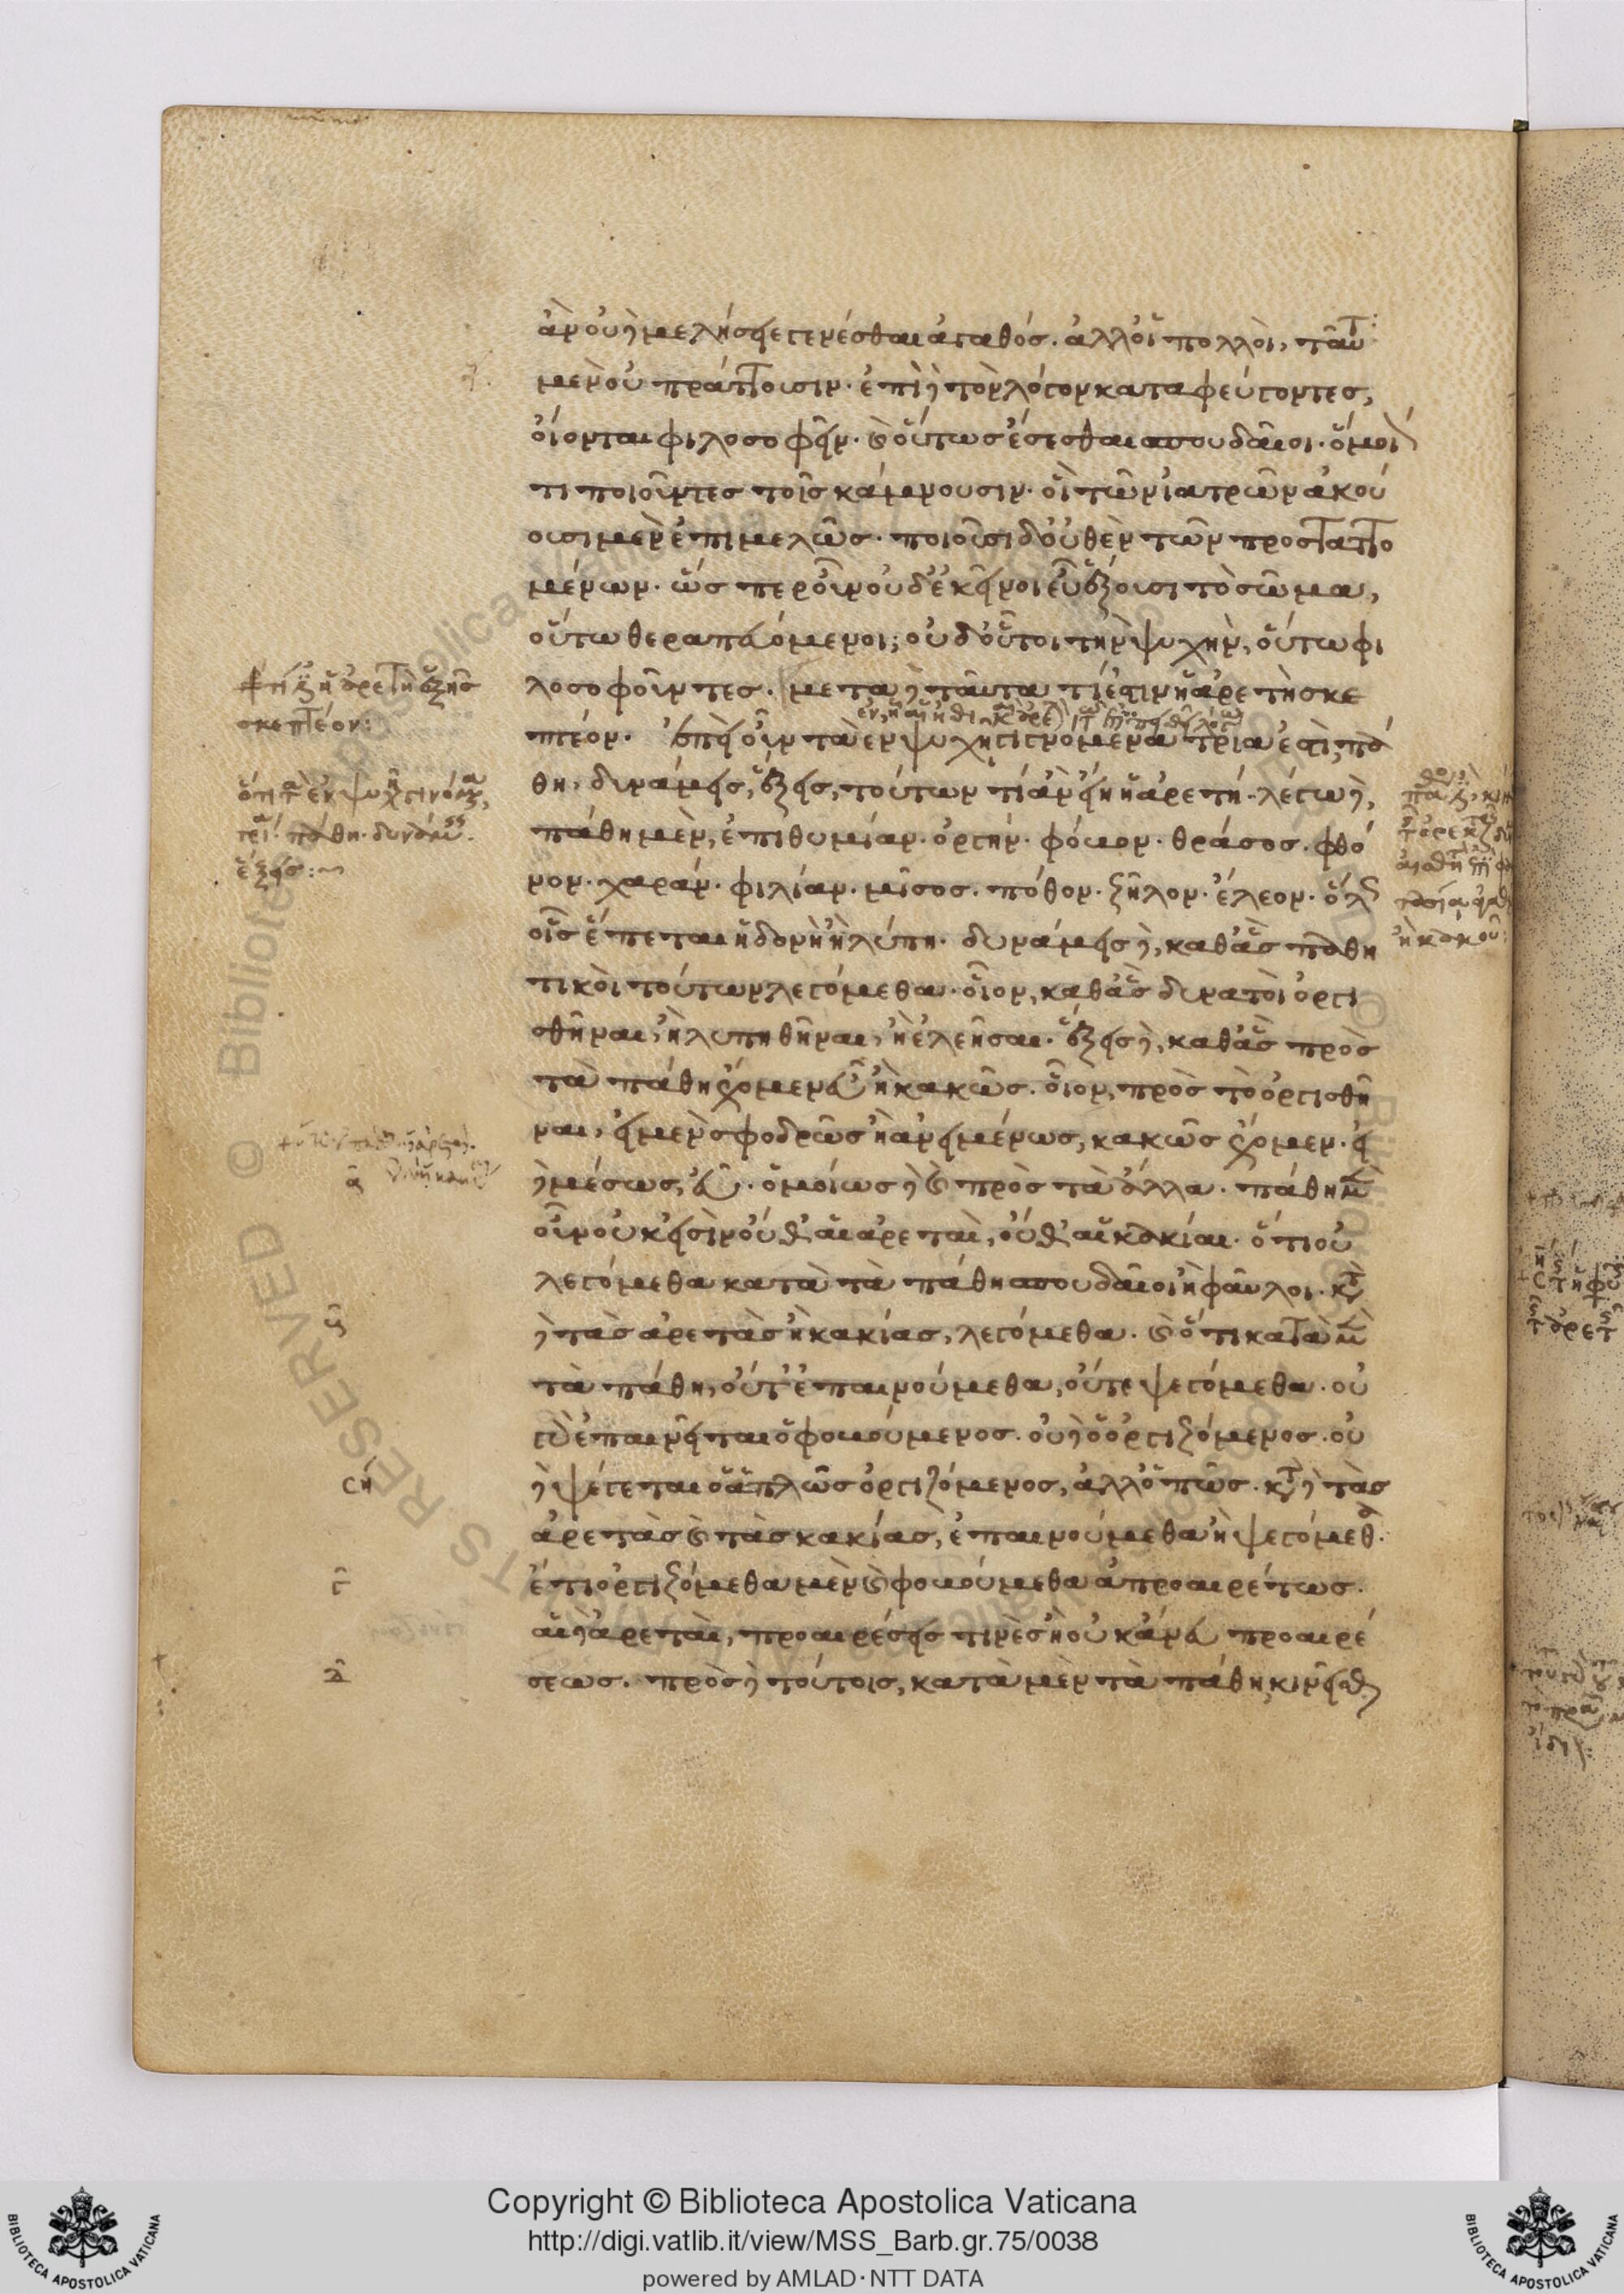 ἂν οὐδὲ μελήσειε γενέσθαι ἀγαθός. ἀλλ' οἱ πολλοὶ, ταῦτα
μὲν οὐ πράττουσιν. ἐπὶ δὲ τὸν λόγον καταφεύγοντες,
οἴονται φιλοσοφεῖν. καὶ οὕτως ἔσεσθαι σπουδαῖοι. ὅμοιόν
τι ποιοῦντες τοῖς κάμνουσιν. οἳ τῶν ἰατρῶν ἀκού
ουσι μὲν ἐπιμελῶς. ποιοῦσι δ' οὐθὲν τῶν προσταττο
μένων. ὥσπερ οὖν οὐδ' ἐκεῖνοι εὖ ἕξουσι τὸ σῶμα,
οὕτω θεραπευόμενοι; οὐδ' οὗτοι τὴν ψυχὴν, οὕτω φι
λοσοφοῦντες. μετὰ δὲ ταῦτα τί ἐστιν ἡ ἀρετὴ σκε
πτέον. ἐπεὶ οὖν τὰ ἐν ψυχῇ γιγνόμενα τρία ἐστὶ, πά
θη, δυνάμεις, ἕξεις, τούτων τί ἂν εἴη ἡ ἀρετή. λέγω δὲ,
πάθη μὲν, ἐπιθυμίαν. ὀργήν. φόβον. θράσος. φθό
νον. χαράν. φιλίαν. μῖσος. πόθον. ζῆλον. ἔλεον. ὅλως
οἷς ἕπεται ἡδονὴ ἢ λύπη. δυνάμεις δὲ, καθ' ἃς παθη
τικοὶ τούτων λεγόμεθα. οἷον, καθ' ἃς δυνατοὶ ὀργι
σθῆναι, ἢ λυπηθῆναι, ἢ ἐλεῆσαι. ἕξεις δὲ, καθ' ἃς πρὸς
τὰ πάθη ἔχομεν εὖ ἢ κακῶς. οἷον, πρὸς τὸ ὀργισθῆ
ναι, εἰ μὲν σφοδρῶς ἢ ἀνειμένως, κακῶς ἔχομεν. εἰ
δὲ μέσως, εὖ. ὁμοίως δὲ καὶ πρὸς τὰ ἄλλα. πάθη μὲν
οὖν οὐκ εἰσὶν οὔθ' αἱ ἀρεταὶ, οὔθ' αἱ κακίαι. ὅτι οὐ
λεγόμεθα κατὰ τὰ πάθη σπουδαῖοι ἢ φαῦλοι. κατὰ
δὲ τὰς ἀρετὰς ἢ κακίας, λεγόμεθα. καὶ ὅτι κατὰ μὲν
τὰ πάθη, οὔτ' ἐπαινούμεθα, οὔτε ψεγόμεθα. οὐ
γὰρ ἐπαινεῖται ὁ φοβούμενος. οὐδὲ ὁ ὀργιζόμενος. οὐ
δὲ ψέγεται ὁ ἁπλῶς ὀργιζόμενος, ἀλλ' ὁ πῶς. κατὰ δὲ τὰς
ἀρετὰς καὶ τὰς κακίας, ἐπαινούμεθα ἢ ψεγόμεθα.
ἔτι ὀργιζόμεθα μὲν καὶ φοβούμεθα ἀπροαιρέτως.
αἱ δὲ ἀρεταὶ, προαιρέσεις τινὲς ἢ οὐκ ἄνευ προαιρέ
σεως. πρὸς δὲ τούτοις, κατὰ μὲν τὰ πάθη, κινεῖσθαι
σκεπτέον:
ὅτι τὰ ἐν ψυχῇ γινόμενα,
τρία. πάθη. δυνάμεις.
ἕξεις:
Copyright © Biblioteca Apostolica Vaticana
http://digi.vatlib.it/view/MSS_Barb.gr.75/0038
powered by AMLAD·NTT DATA
BIBLIOTECA APOSTOLICA VATICANA
BIBLIOTECA APOSTOLICA VATICANA